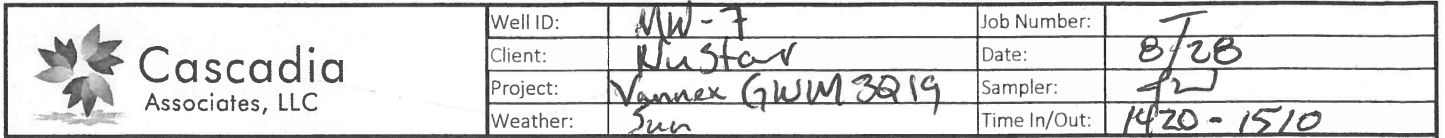 Cascadia
Associates, LLC
Well ID: MW-7 Job Number:
Client: NuStar Date: 8/28
Project: Vannex GWM 3Q19 Sampler:
Weather: Sun Time In/Out: 1420 - 1510